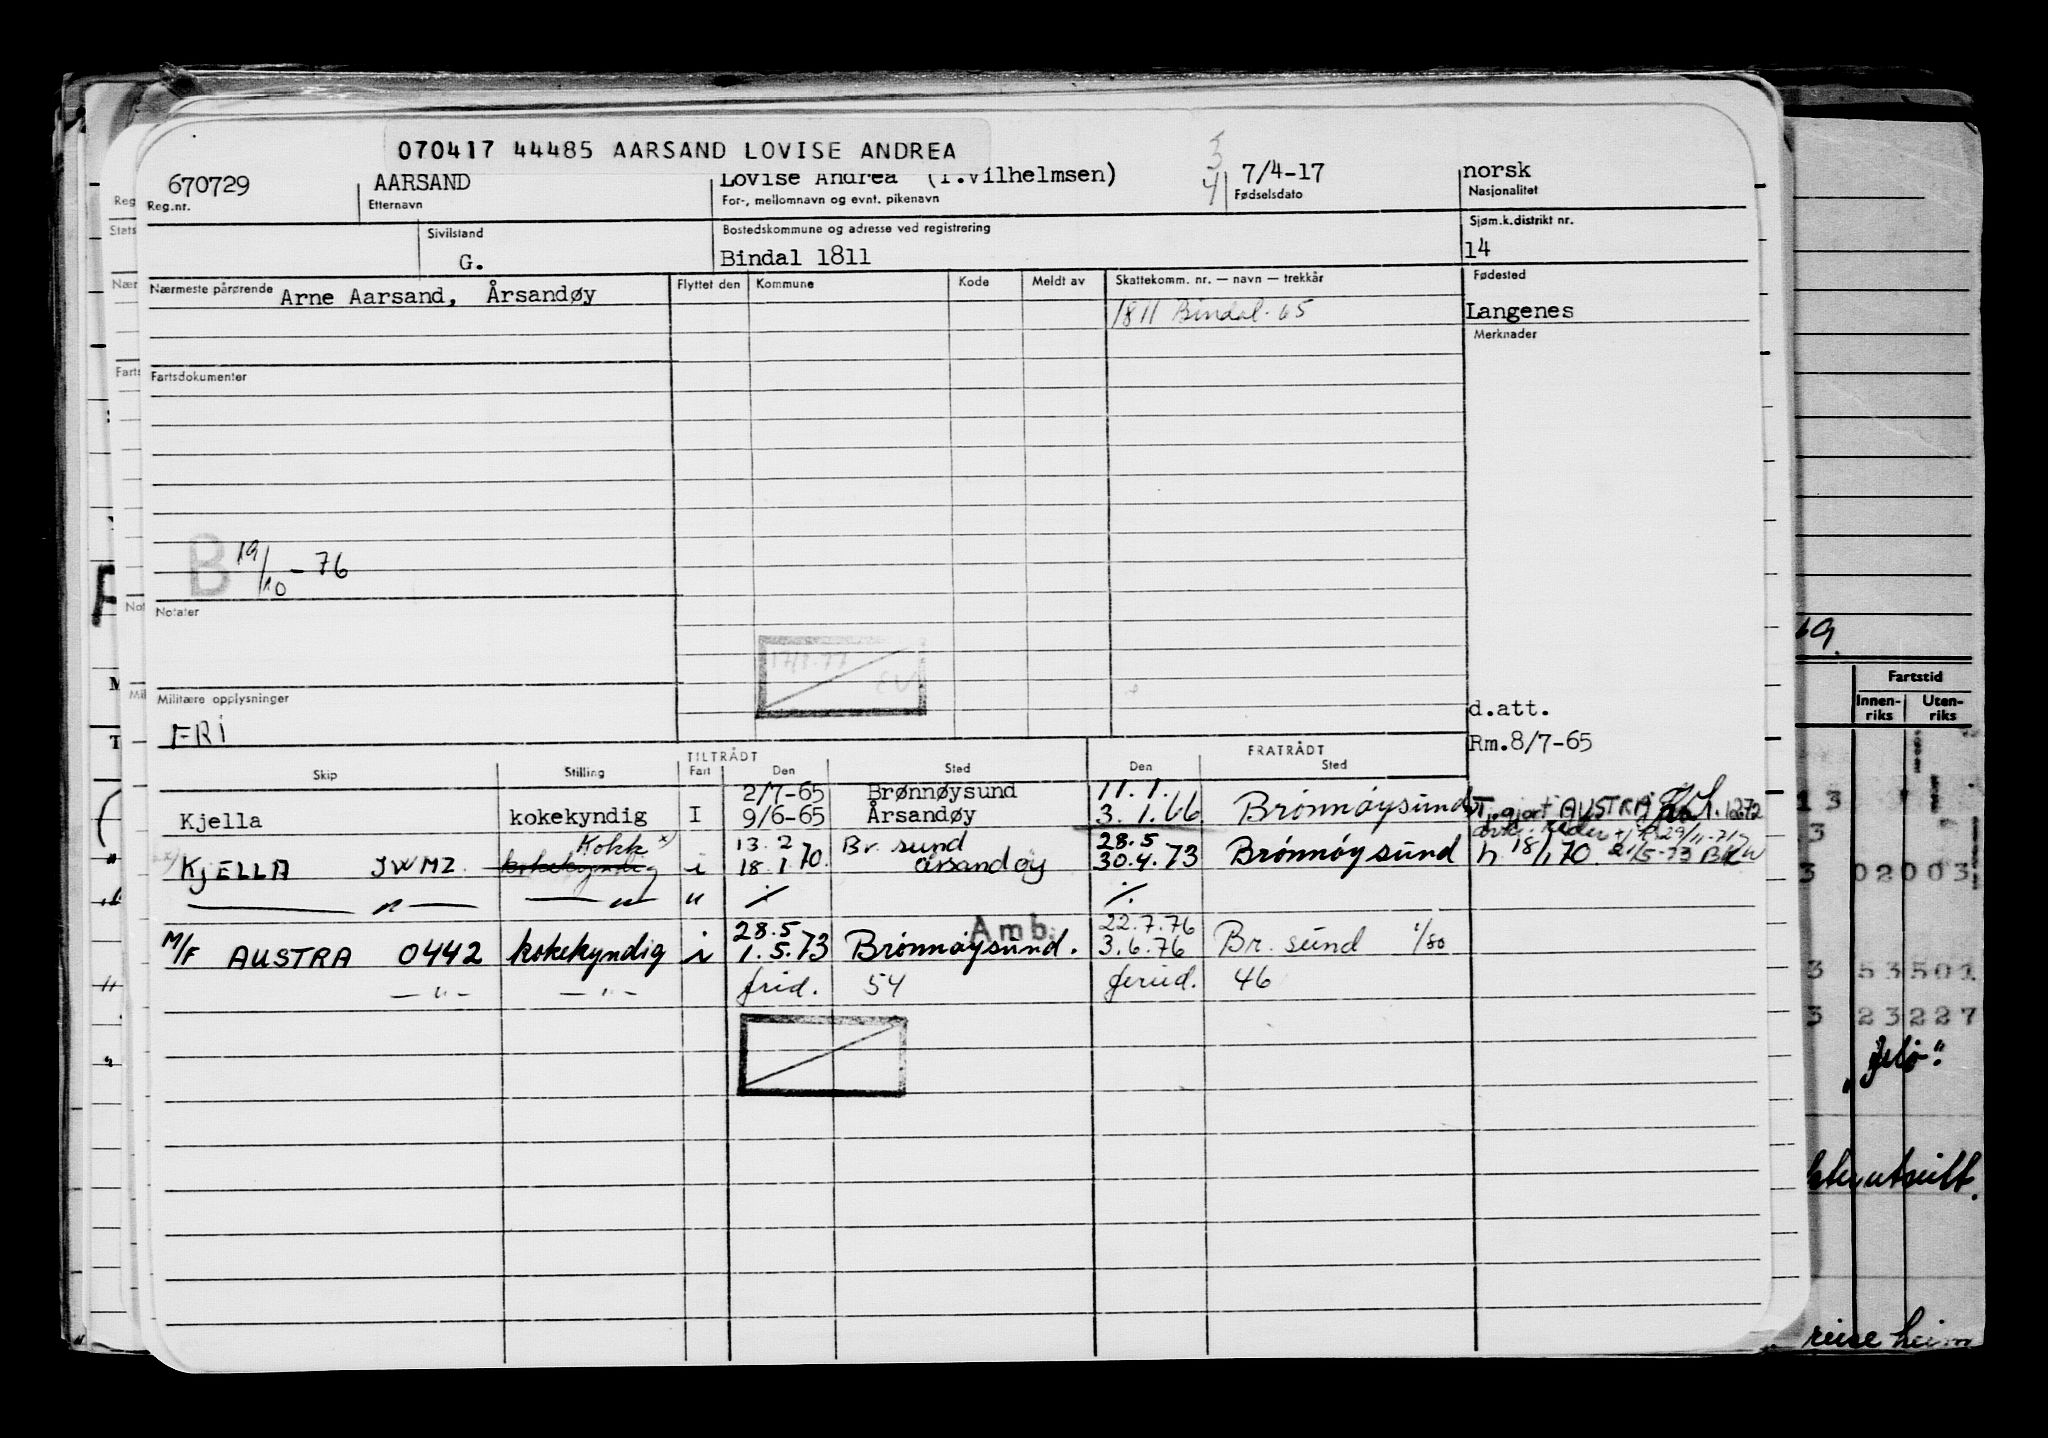 070417 44485 AARSAND LOVISE ANDREA
670729 AARSAND Lovise Andrea (f.Vilhelmsen) 5/4 7/4-17 norsk
Reg.nr. Etternavn For-, mellomnavn og evnt. pikenavn Fødselsdato Nasjonalitet
Sivilstand Bostedskommune og adresse ved registrering Sjøm.k.distrikt nr.
G. Bindal 1811 14
Nærmeste pårørende Arne Aarsand, Årsandøy Flyttet den Kommune Kode Meldt av Skattekomm. nr. — navn — trekkår Fødested
1811 Bindal-65 Langenes
Merknader
Fartsdokumenter
B 19/10-76
Notater
Militære opplysninger d.att.
FRI Rm.8/7-65
TILTRÅDT FRATRÅDT
Skip Stilling Fart Den Sted Den Sted
2/7-65 Brønnøysund 11.1.
Kjella kokekyndig I 9/6-65 Årsandøy 3.1.66 Brønnøysund
Kokk x) 13.2 Br.sund 28.5
KJELLA JWMZ kokekyndig i 18.1.70. Årsandøy 30.4.73 Brønnøysund h 18/1 70. 21/5-73
— " — — " — " ./. ./.
28.5 Amb. 22.7.76
M/F AUSTRA 0442 kokekyndig i 1.5.73 Brønnøysund. 3.6.76 Br.sund 1/80
— " — — " — frid. 54 feried. 46
69.
Fartstid
Innen-riks Uten-riks
13
3
3 02003
3 53501
3 23227
reise heim